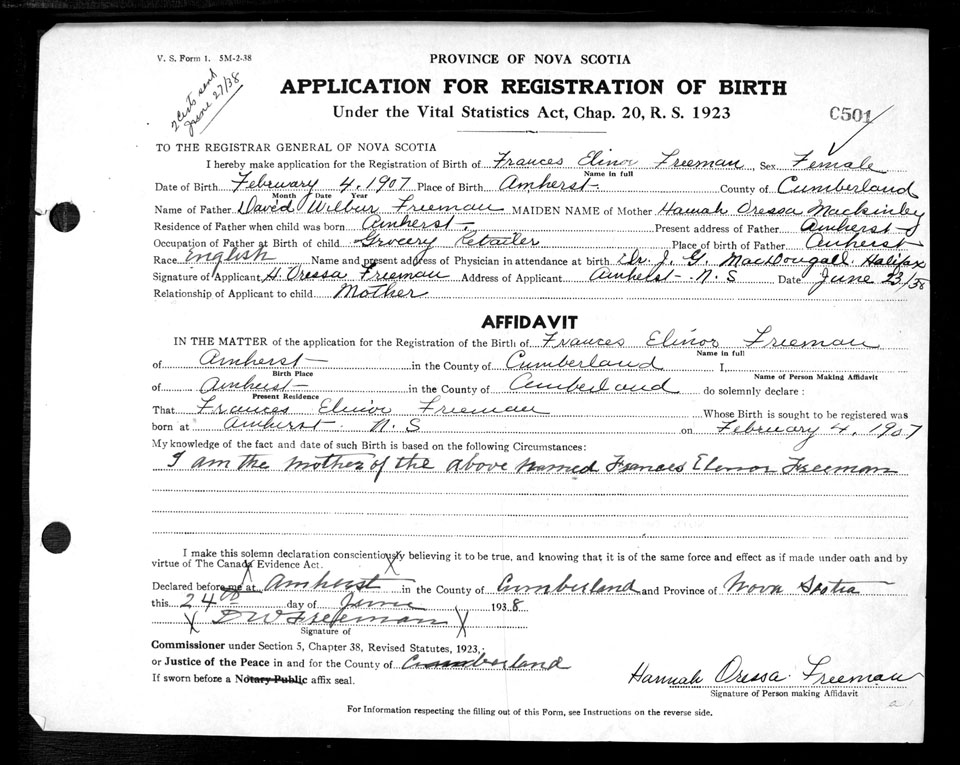 V. S. Form 1. 5M-2-38
2 Certs sent
June 27/38
PROVINCE OF NOVA SCOTIA
APPLICATION FOR REGISTRATION OF BIRTH
Under the Vital Statistics Act, Chap. 20, R. S. 1923
C501
TO THE REGISTRAR GENERAL OF NOVA SCOTIA
I hereby make application for the Registration of Birth of Frances Elinor Freeman Sex Female
Name in full
Date of Birth February 4, 1907 Place of Birth Amherst County of Cumberland
Month Date Year
Name of Father David Wilbur Freeman MAIDEN NAME of Mother Hannah Oressa Mackinley
Residence of Father when child was born Amherst Present address of Father Amherst
Occupation of Father at Birth of child Grocery Retailer Place of birth of Father Amherst
Race English Name and present address of Physician in attendance at birth Dr. J. G. MacDougall Halifax
Signature of Applicant H. Oressa Freeman Address of Applicant Amherst N. S Date June 23/38
Relationship of Applicant to child Mother
AFFIDAVIT
IN THE MATTER of the application for the Registration of the Birth of Frances Elinor Freeman
Name in full
of Amherst in the County of Cumberland I,
Birth Place Name of Person Making Affidavit
of Amherst in the County of Cumberland do solemnly declare :
Present Residence
That Frances Elinor Freeman Whose Birth is sought to be registered was
born at Amherst. N. S on February 4, 1907
My knowledge of the fact and date of such Birth is based on the following Circumstances:
I am the mother of the above named Frances Elenor Freeman
I make this solemn declaration conscientiously believing it to be true, and knowing that it is of the same force and effect as if made under oath and by
virtue of The Canada Evidence Act.
Declared before me at Amherst in the County of Cumberland and Province of Nova Scotia
this 24th day of June 1938
X D W Freeman X
Signature of
Commissioner under Section 5, Chapter 38, Revised Statutes, 1923,
or Justice of the Peace in and for the County of Cumberland
If sworn before a Notary Public affix seal.
Hannah Oressa Freeman
Signature of Person making Affidavit
For Information respecting the filling out of this Form, see Instructions on the reverse side.